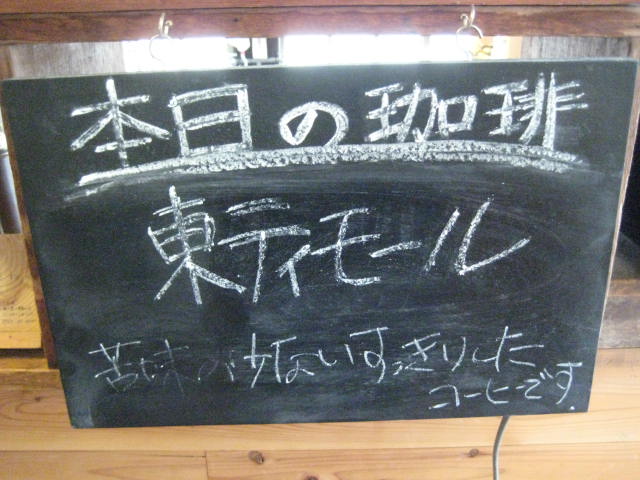 本日の珈琲
東ティモール
苦味が少ないすっきりした
コーヒーです.